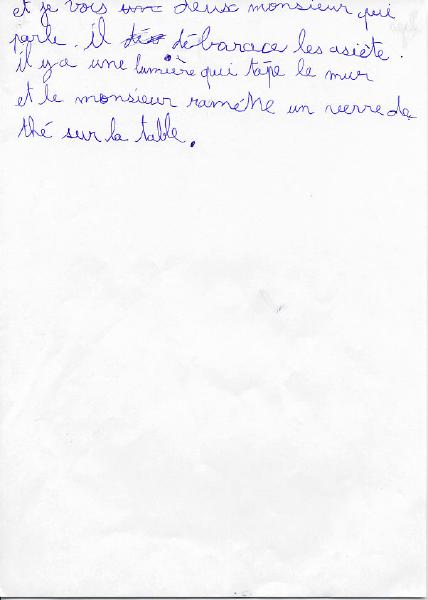 et je vois deux monsieur qui
parle. il débarace les asiète.
il y a une lumière qui tape le mur
et le monsieur ramène un verre de
thé sur la table.